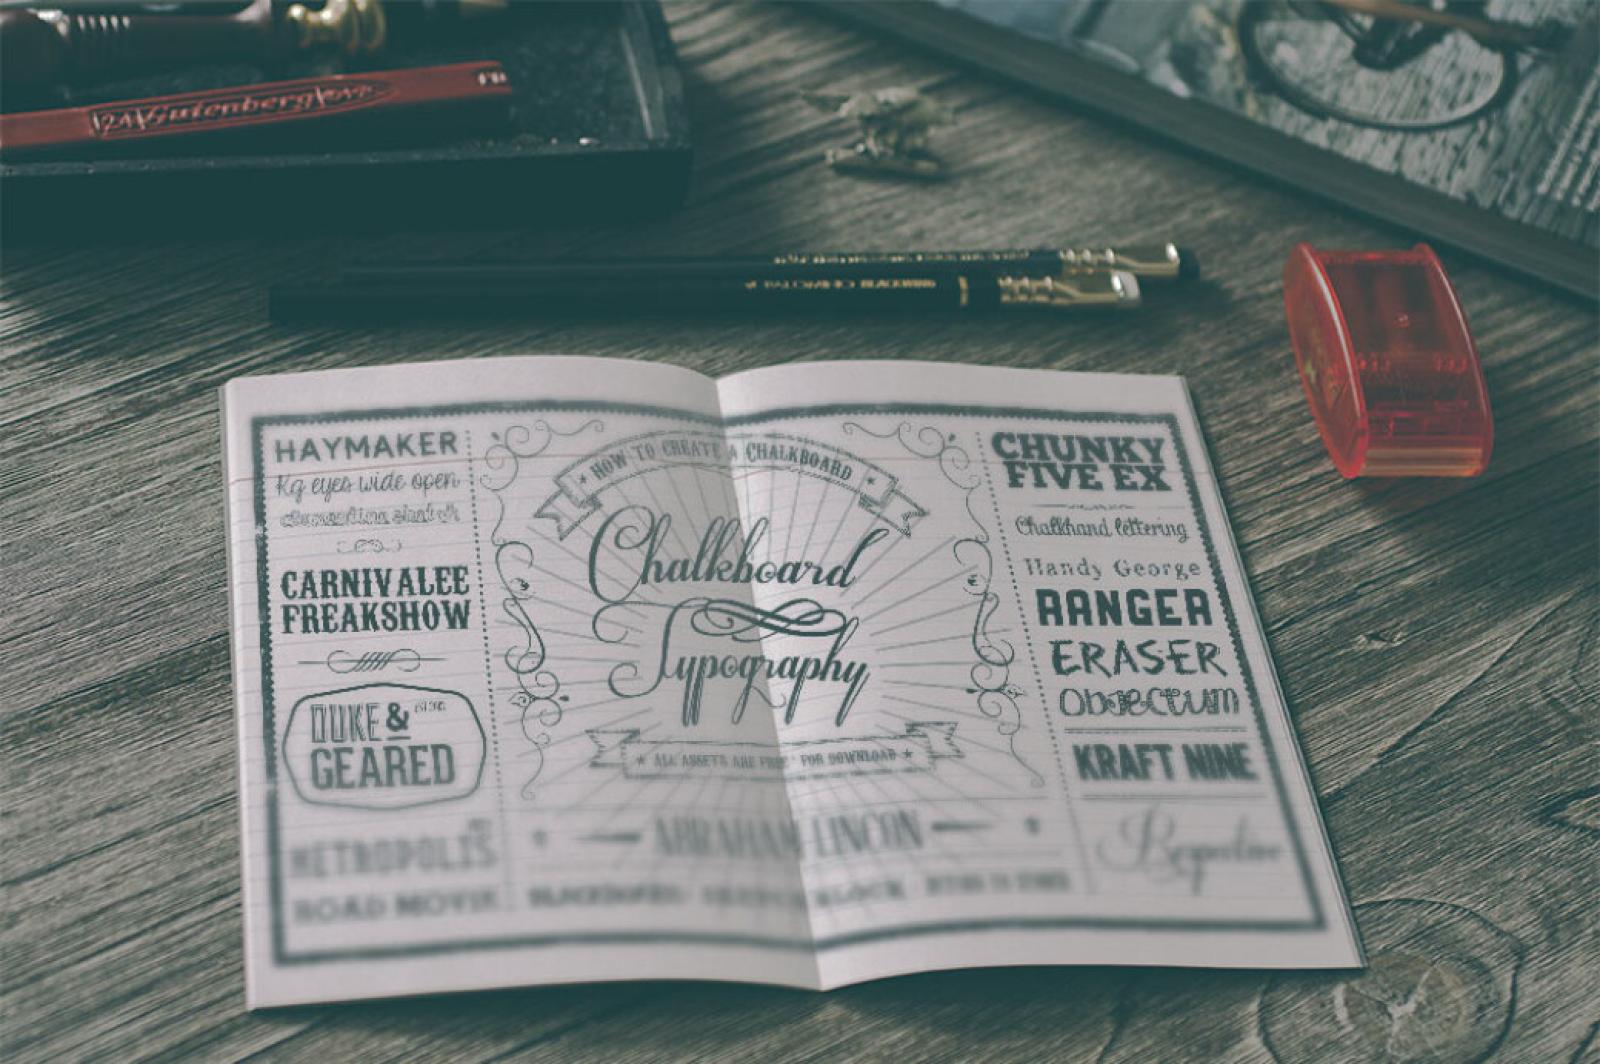 Gutenberg
HAYMAKER
Kg eyes wide open
CARNIVALEE
FREAKSHOW
DUKE &
GEARED
METROPOLIS
ROAD MOVIE
HOW TO CREATE A CHALKBOARD
Chalkboard
Typography
ALL ASSETS ARE FREE FOR DOWNLOAD
ABRAHAM LINCON
CHUNKY
FIVE EX
Chalkhand lettering
Handy George
RANGER
ERASER
OBJECTUM
KRAFT NINE